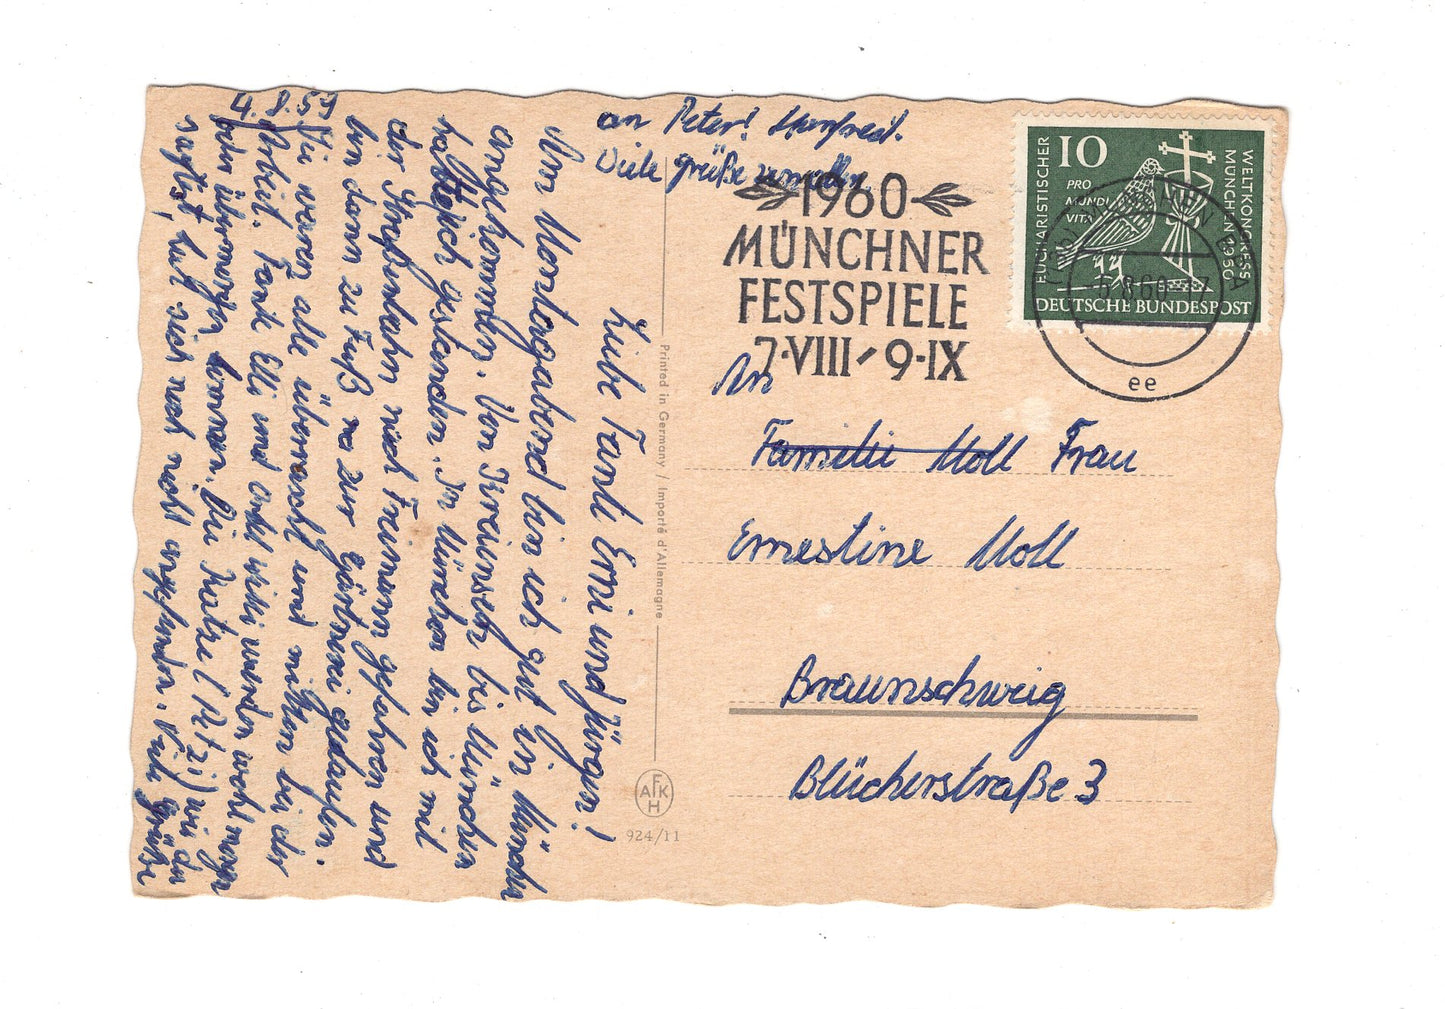 4. 8. 59
an Peter! Manfred.
Viele grüße
Liebe Tante Erni und Jürgen!
Am Montagabend bin ich gut in München
angekommen. Von bis München
habe ich gestanden. In München bin ich mit
der Straßenbahn nach Freimann gefahren und
bin dann zu Fuß zur Gärtnerei gelaufen.
Sie waren alle überrascht und mitten bei der
Arbeit. Tante Elli und Onkel Willi werden wohl morgen
oder übermorgen kommen. Die Katze (Mitzi) wie du
sagtest, hat sich noch nicht eingefunden. Viele Grüße
1960
MÜNCHNER
FESTSPIELE
7·VIII-9·IX
10
PRO
MUNDI
VITA
EUCHARISTISCHER
WELTKONGRESS
MÜNCHEN 1960
DEUTSCHE BUNDESPOST
ee
An
Familie Moll Frau
Ernestine Moll
Braunschweig
Blücherstraße 3
Printed in Germany / Importé d'Allemagne
AFKH
924/11